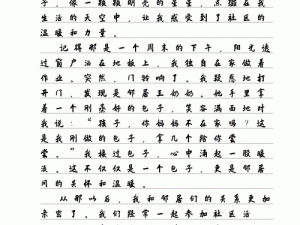 点滴，像一颗颗明亮的星星，点缀在我
生活的天空中，让我感受到了社区的
温暖和力量。
记得那是一个周末的下午，阳光透
过窗户洒在地板上，我独自在家做着
作业。突然，门铃响了。我疑惑地打
开门，发现是邻居王奶奶。她手里拿
着一个刚蒸好的包子，笑容满面地对
我说：“孩子，你妈妈不在家吗？这
是我刚做的包子，拿几个给你尝
尝。”我接过包子，心中涌起一股暖
流。这不仅仅是一个包子，更是邻居
间的关怀和温暖。
从那以后，我和邻居们的关系更加
亲密了。我们经常一起参加社区活